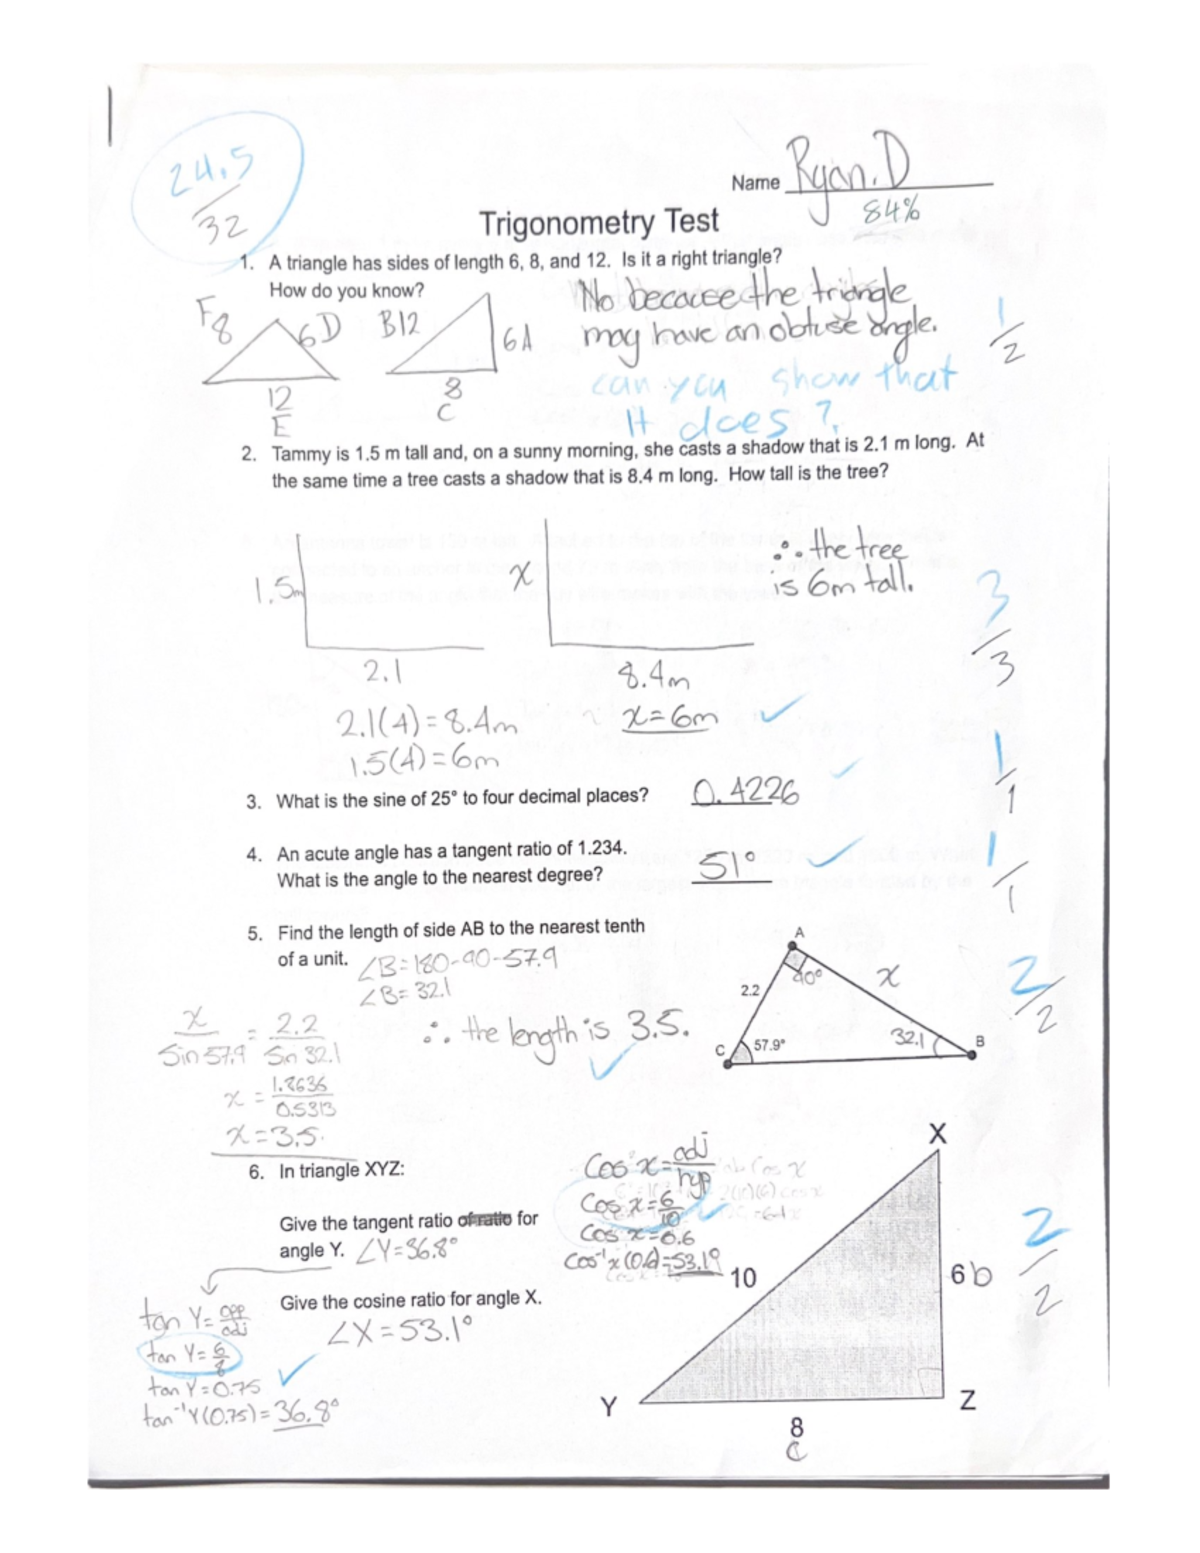 24.5
32
Name Ryan.D
84%
Trigonometry Test
1. A triangle has sides of length 6, 8, and 12. Is it a right triangle?
How do you know?
F 8
6D
12
E
B12
6A
8
C
No because the triangle
may have an obtuse angle.
can you show that
it does?
1
2
2. Tammy is 1.5 m tall and, on a sunny morning, she casts a shadow that is 2.1 m long. At
the same time a tree casts a shadow that is 8.4 m long. How tall is the tree?
1.5m
2.1
x
8.4m
∴ the tree
is 6m tall.
3
3
2.1(4)=8.4m
1.5(4)=6m
x=6m
3. What is the sine of 25° to four decimal places? 0.4226
1
1
4. An acute angle has a tangent ratio of 1.234.
What is the angle to the nearest degree? 51°
1
1
5. Find the length of side AB to the nearest tenth
of a unit. ∠B=180-90-57.9
∠B=32.1
x/Sin57.9 = 2.2/Sin 32.1
x = 1.8636/0.5313
x=3.5.
∴ the length is 3.5.
A
2.2
90°
x
C 57.9°
32.1 B
2
2
6. In triangle XYZ:
Give the tangent ratio of ratio for
angle Y. ∠Y=36.8°
tan Y= opp/adj
tan Y= 6/8
tan Y=0.75
tan⁻¹Y(0.75)=36.8°
Give the cosine ratio for angle X.
∠X=53.1°
Cos x=adj/hyp
Cos x=6/10
Cos x=0.6
Cos⁻¹x(0.6)=53.1°
X
10
6 b
Y
Z
8
C
2
2